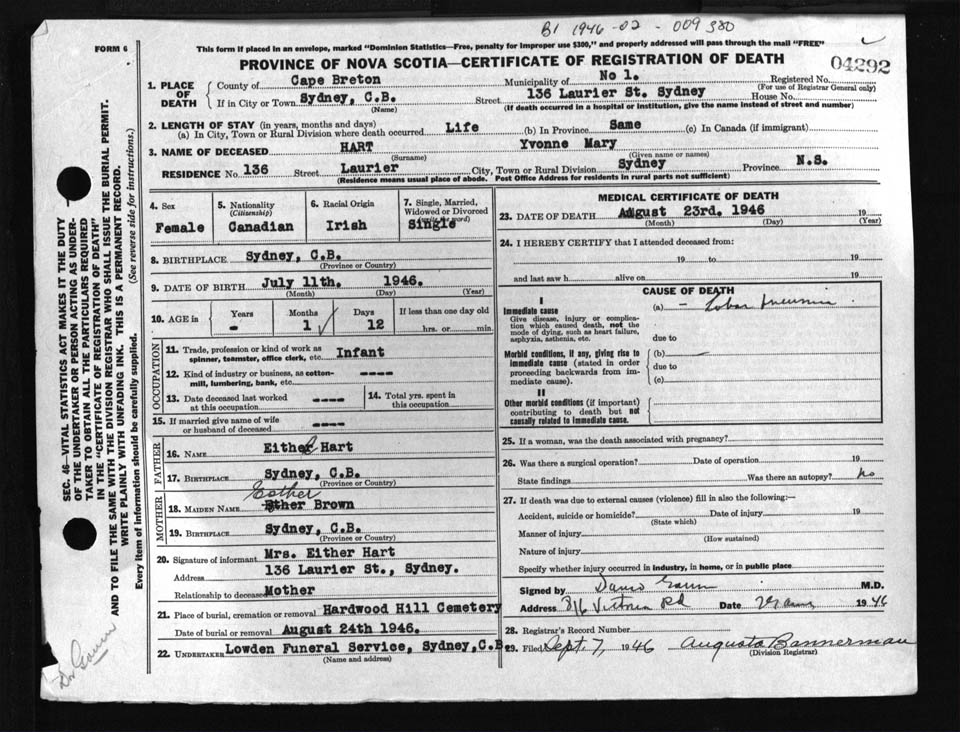 B1 1946-02-009380
FORM 6
This form if placed in an envelope, marked "Dominion Statistics—Free, penalty for improper use $300," and properly addressed will pass through the mail "FREE"
PROVINCE OF NOVA SCOTIA—CERTIFICATE OF REGISTRATION OF DEATH
04292
1. PLACE OF DEATH
County of Cape Breton Municipality of No 1. Registered No.
(For use of Registrar General only)
If in City or Town Sydney, C.B. Street 136 Laurier St. Sydney House No.
(Name) (If death occurred in a hospital or institution, give the name instead of street and number)
2. LENGTH OF STAY (in years, months and days)
(a) In City, Town or Rural Division where death occurred Life (b) In Province Same (c) In Canada (if immigrant)
3. NAME OF DECEASED HART Yvonne Mary
(Surname) (Given name or names)
RESIDENCE No 136 Street Laurier City, Town or Rural Division Sydney Province N.S.
(Residence means usual place of abode. Post Office Address for residents in rural parts not sufficient)
4. Sex
Female
5. Nationality
(Citizenship)
Canadian
6. Racial Origin
Irish
7. Single, Married, Widowed or Divorced
(write the word)
Single
8. BIRTHPLACE Sydney, C.B.
(Province or Country)
9. DATE OF BIRTH July 11th. 1946.
(Month) (Day) (Year)
10. AGE in Years Months Days If less than one day old
- 1 12 hrs. or min.
OCCUPATION
11. Trade, profession or kind of work as spinner, teamster, office clerk, etc. Infant
12. Kind of industry or business, as cotton-mill, lumbering, bank, etc. ----
13. Date deceased last worked at this occupation ----
14. Total yrs. spent in this occupation
15. If married give name of wife or husband of deceased ----
FATHER
16. NAME Either Hart
17. BIRTHPLACE Sydney, C.B.
(Province or Country)
MOTHER
Esther
18. MAIDEN NAME Ether Brown
19. BIRTHPLACE Sydney, C.B.
(Province or Country)
20. Signature of informant Mrs. Either Hart
Address 136 Laurier St., Sydney.
Relationship to deceased Mother
21. Place of burial, cremation or removal Hardwood Hill Cemetery
Date of burial or removal August 24th 1946.
22. UNDERTAKER Lowden Funeral Service, Sydney, C.B
(Name and address)
MEDICAL CERTIFICATE OF DEATH
23. DATE OF DEATH August 23rd, 1946 19
(Month) (Day) (Year)
24. I HEREBY CERTIFY that I attended deceased from:
19 to 19
and last saw h alive on 19
CAUSE OF DEATH
I
Immediate cause
Give disease, injury or complication which caused death, not the mode of dying, such as heart failure, asphyxia, asthenia, etc.
(a) - Lobar
due to
Morbid conditions, if any, giving rise to immediate cause (stated in order proceeding backwards from immediate cause).
(b)
due to
(c)
II
Other morbid conditions (if important) contributing to death but not causally related to immediate cause.
25. If a woman, was the death associated with pregnancy?
26. Was there a surgical operation? Date of operation 19
State findings Was there an autopsy? no
27. If death was due to external causes (violence) fill in also the following:—
Accident, suicide or homicide? Date of injury 19
(State which)
Manner of injury
(How sustained)
Nature of injury
Specify whether injury occurred in industry, in home, or in public place
Signed by M.D.
Address 816 Victoria Rd Date 1946
28. Registrar's Record Number
29. Filed Sept. 7, 1946 Augusta Bannerman
(Division Registrar)
SEC. 46—VITAL STATISTICS ACT MAKES IT THE DUTY
OF THE UNDERTAKER OR PERSON ACTING AS UNDER-
TAKER TO OBTAIN ALL THE PARTICULARS REQUIRED
IN THE "CERTIFICATE OF REGISTRATION OF DEATH"
AND TO FILE THE SAME WITH THE DIVISION REGISTRAR WHO SHALL ISSUE THE BURIAL PERMIT.
WRITE PLAINLY WITH UNFADING INK. THIS IS A PERMANENT RECORD.
Every item of information should be carefully supplied. (See reverse side for instructions.)
Dr